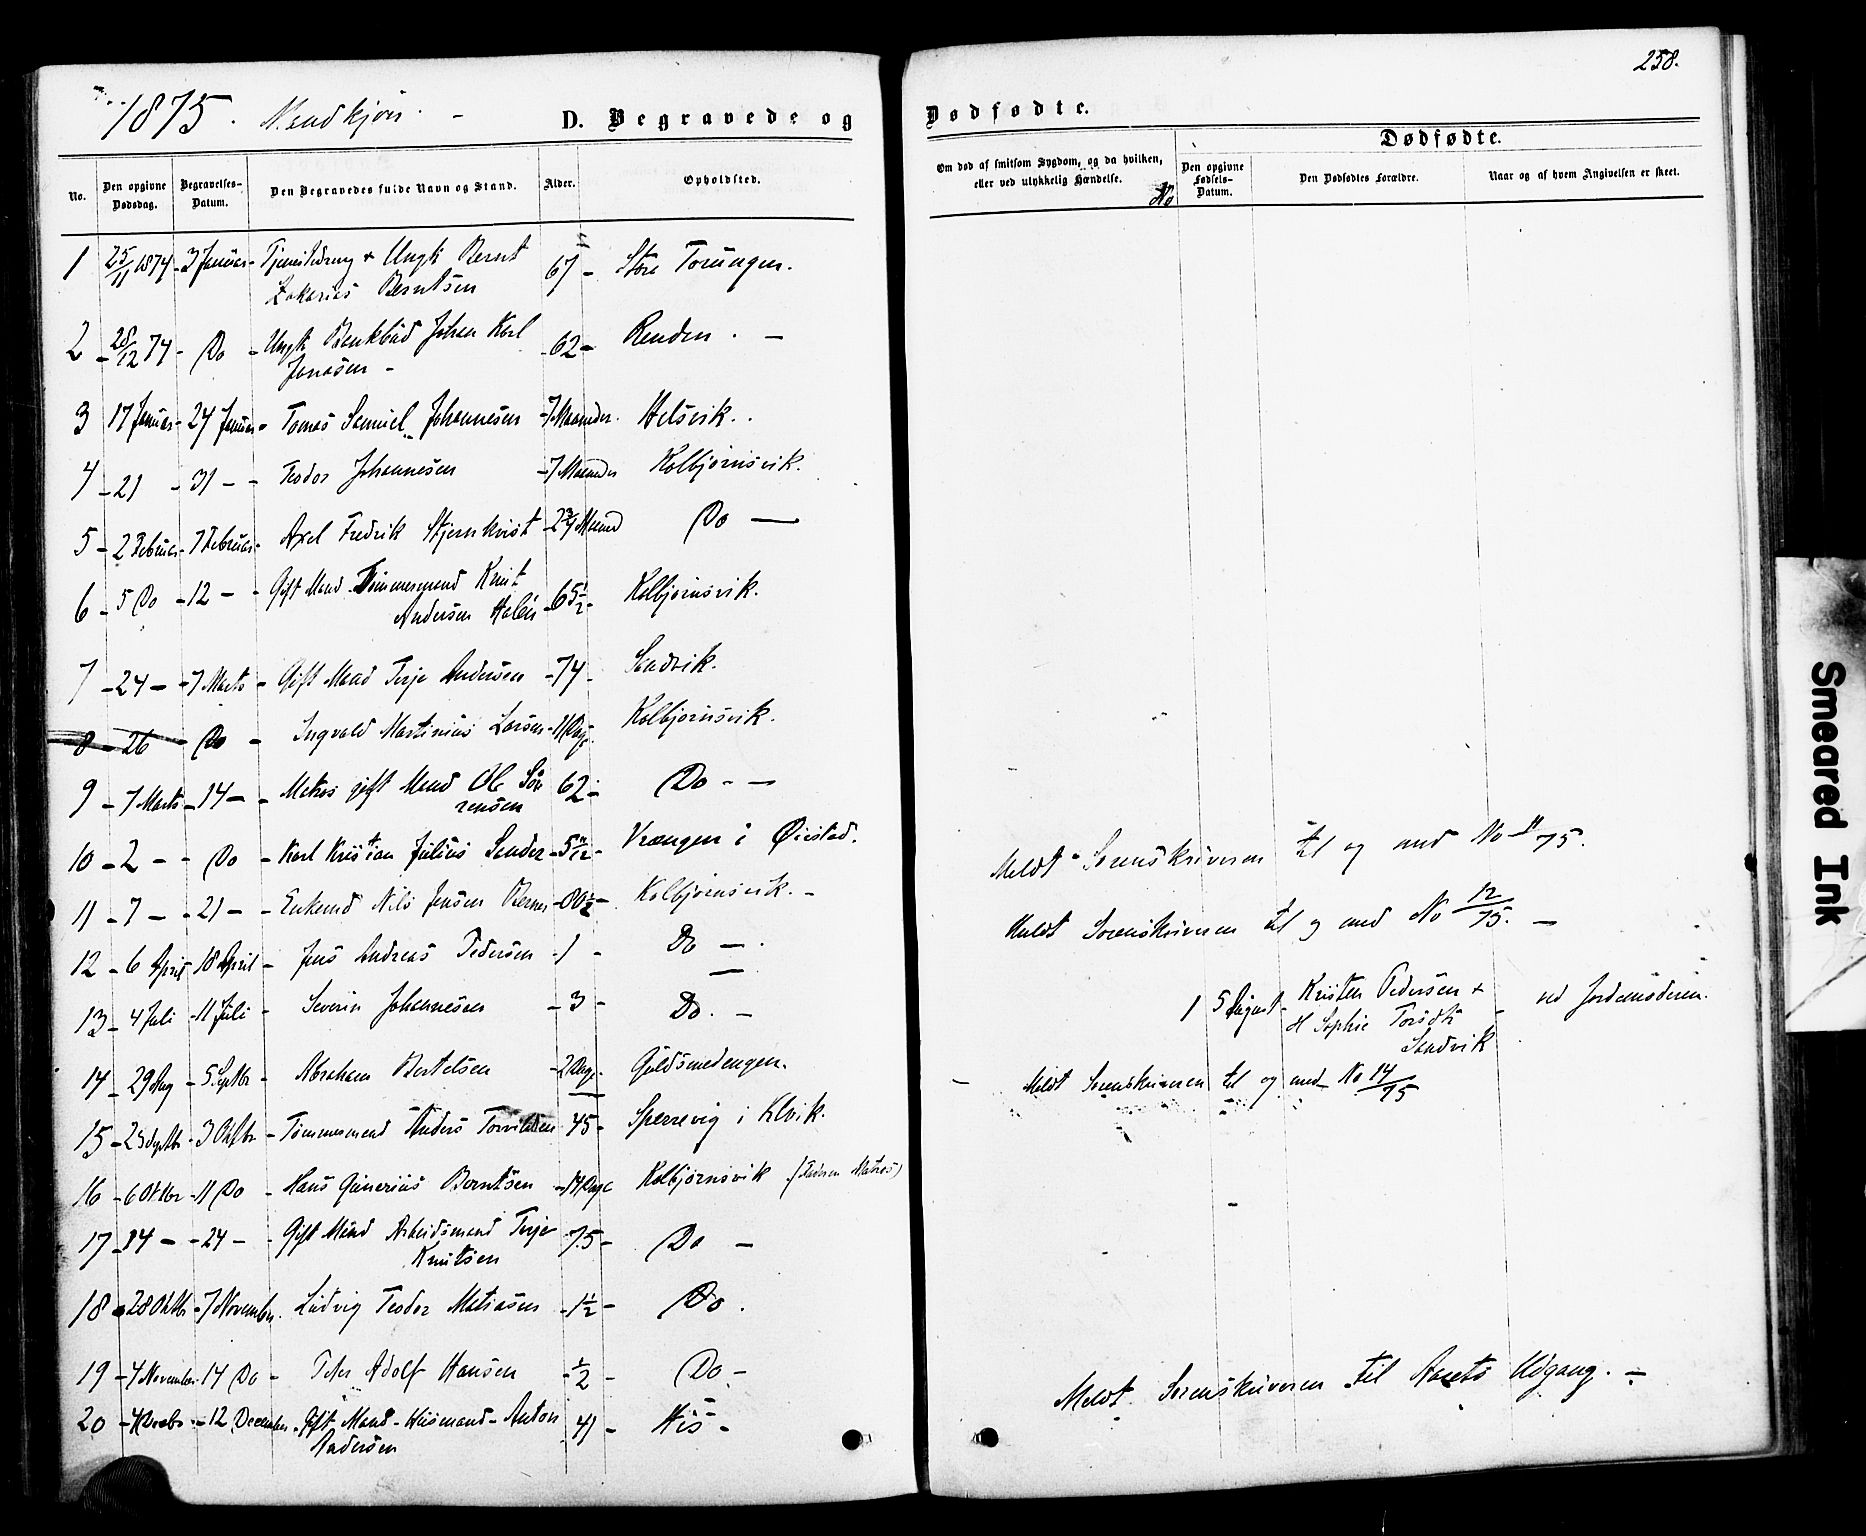 1875. Mandkjøn. -
D. Begravede og
No.
Den opgivne Dødsdag.
Begravelses-Datum.
Den Begravedes fulde Navn og Stand.
Alder.
Opholdsted.
1 25/11 1874 - 3 Januar - & Ungk Bernt 67 - Store Torungen.
Zakarias Berntsen
2 - 28/12 74 - Do - Ungk Johan Karl - 62 - Renden. -
Jonasen -
3 17 Januar - 24 Januar - Tomas Samuel Johannesen - 7 Maaneder. Helsvik.
4 - 21 - 31 - - Teodor Johannesen - 7 Maaneder Kolbjørnsvik.
5 - 2 Februar - 7 Februar - Axel Fredrik Stjernkvist - 2 3/4 Maaned Do -
6 - 5 Do - 12 - - Gift Mand Tømmermand Knut - 65 1/2 - Kolbjørnsvik.
Andersen
7 - 24 - - 7 Marts - Gift Mand Terje Andersen - 74 - Sandvik.
8 - 26 - Do - Ingvald Martinius Larsen - 11 Dage. Kolbjørnsvik.
9 - 7 Marts - 14 - - Matros gift Mand Ole Sør 62 - Do - -
rensen
10 - 2 - - Do - Karl Kristian Julius Sander - 5 11/12 - Vrængen i Øiestad.
11 - 7 - - 21 - - Enkemd Nils Jensen - 80 1/2 - Kolbjørnsvik. -
12 - 6 April - 18 April - Jens Andreas Pedersen - 1 - Do -
13 - 4 Juli - 11 Juli - Severin Johannesen - 3 - Do. -
14 - 29 Aug - 5 Septbr - Abraham Bertelsen - 2 Dage - Guldsmedengen.
15 - 25 Septbr - 3 Oktbr - Tømmermand Anders - 45 - Sperrevig i
16 - 6 Oktbr - 11 Do - Hans Gunerius Berntsen - 14 Dage Kolbjørnsvik (Faderen Matros)
17 - 14 - - 24 - - Gift Mand Arbeidsmand Terje - 75 - Do -
Knutsen
18 - 28 Oktbr - 7 November. Ludvig Teodor Matiasen - 1 1/2 - Do.
19 - 4 November 14 Do - Peter Adolf Hansen - 1/2 - Do -
20 - 4 - 12 December - Gift Mand - Huusmand - Anton 41 - His -
Pedersen
258.
Dødfødte.
Om død af smitsom Sygdom, og da hvilken, eller ved ulykkelig Hændelse.
No
Dødfødte.
Den opgivne Fødsels-Datum.
Den Dødfødtes Forældre.
Naar og af hvem Angivelsen er skeet.
Meldt Sorenskriveren til og med No 11/75.
Meldt Sorenskriveren til og med No 12/75. -
1 5 August - Kristen Pedersen & - ved Jordemoderen.
H Sophie
Sandvik
- Meldt Sorenskriveren til og med No 14/75
Meldt Sorenskriveren til Aarets Udgang. -
Smeared Ink